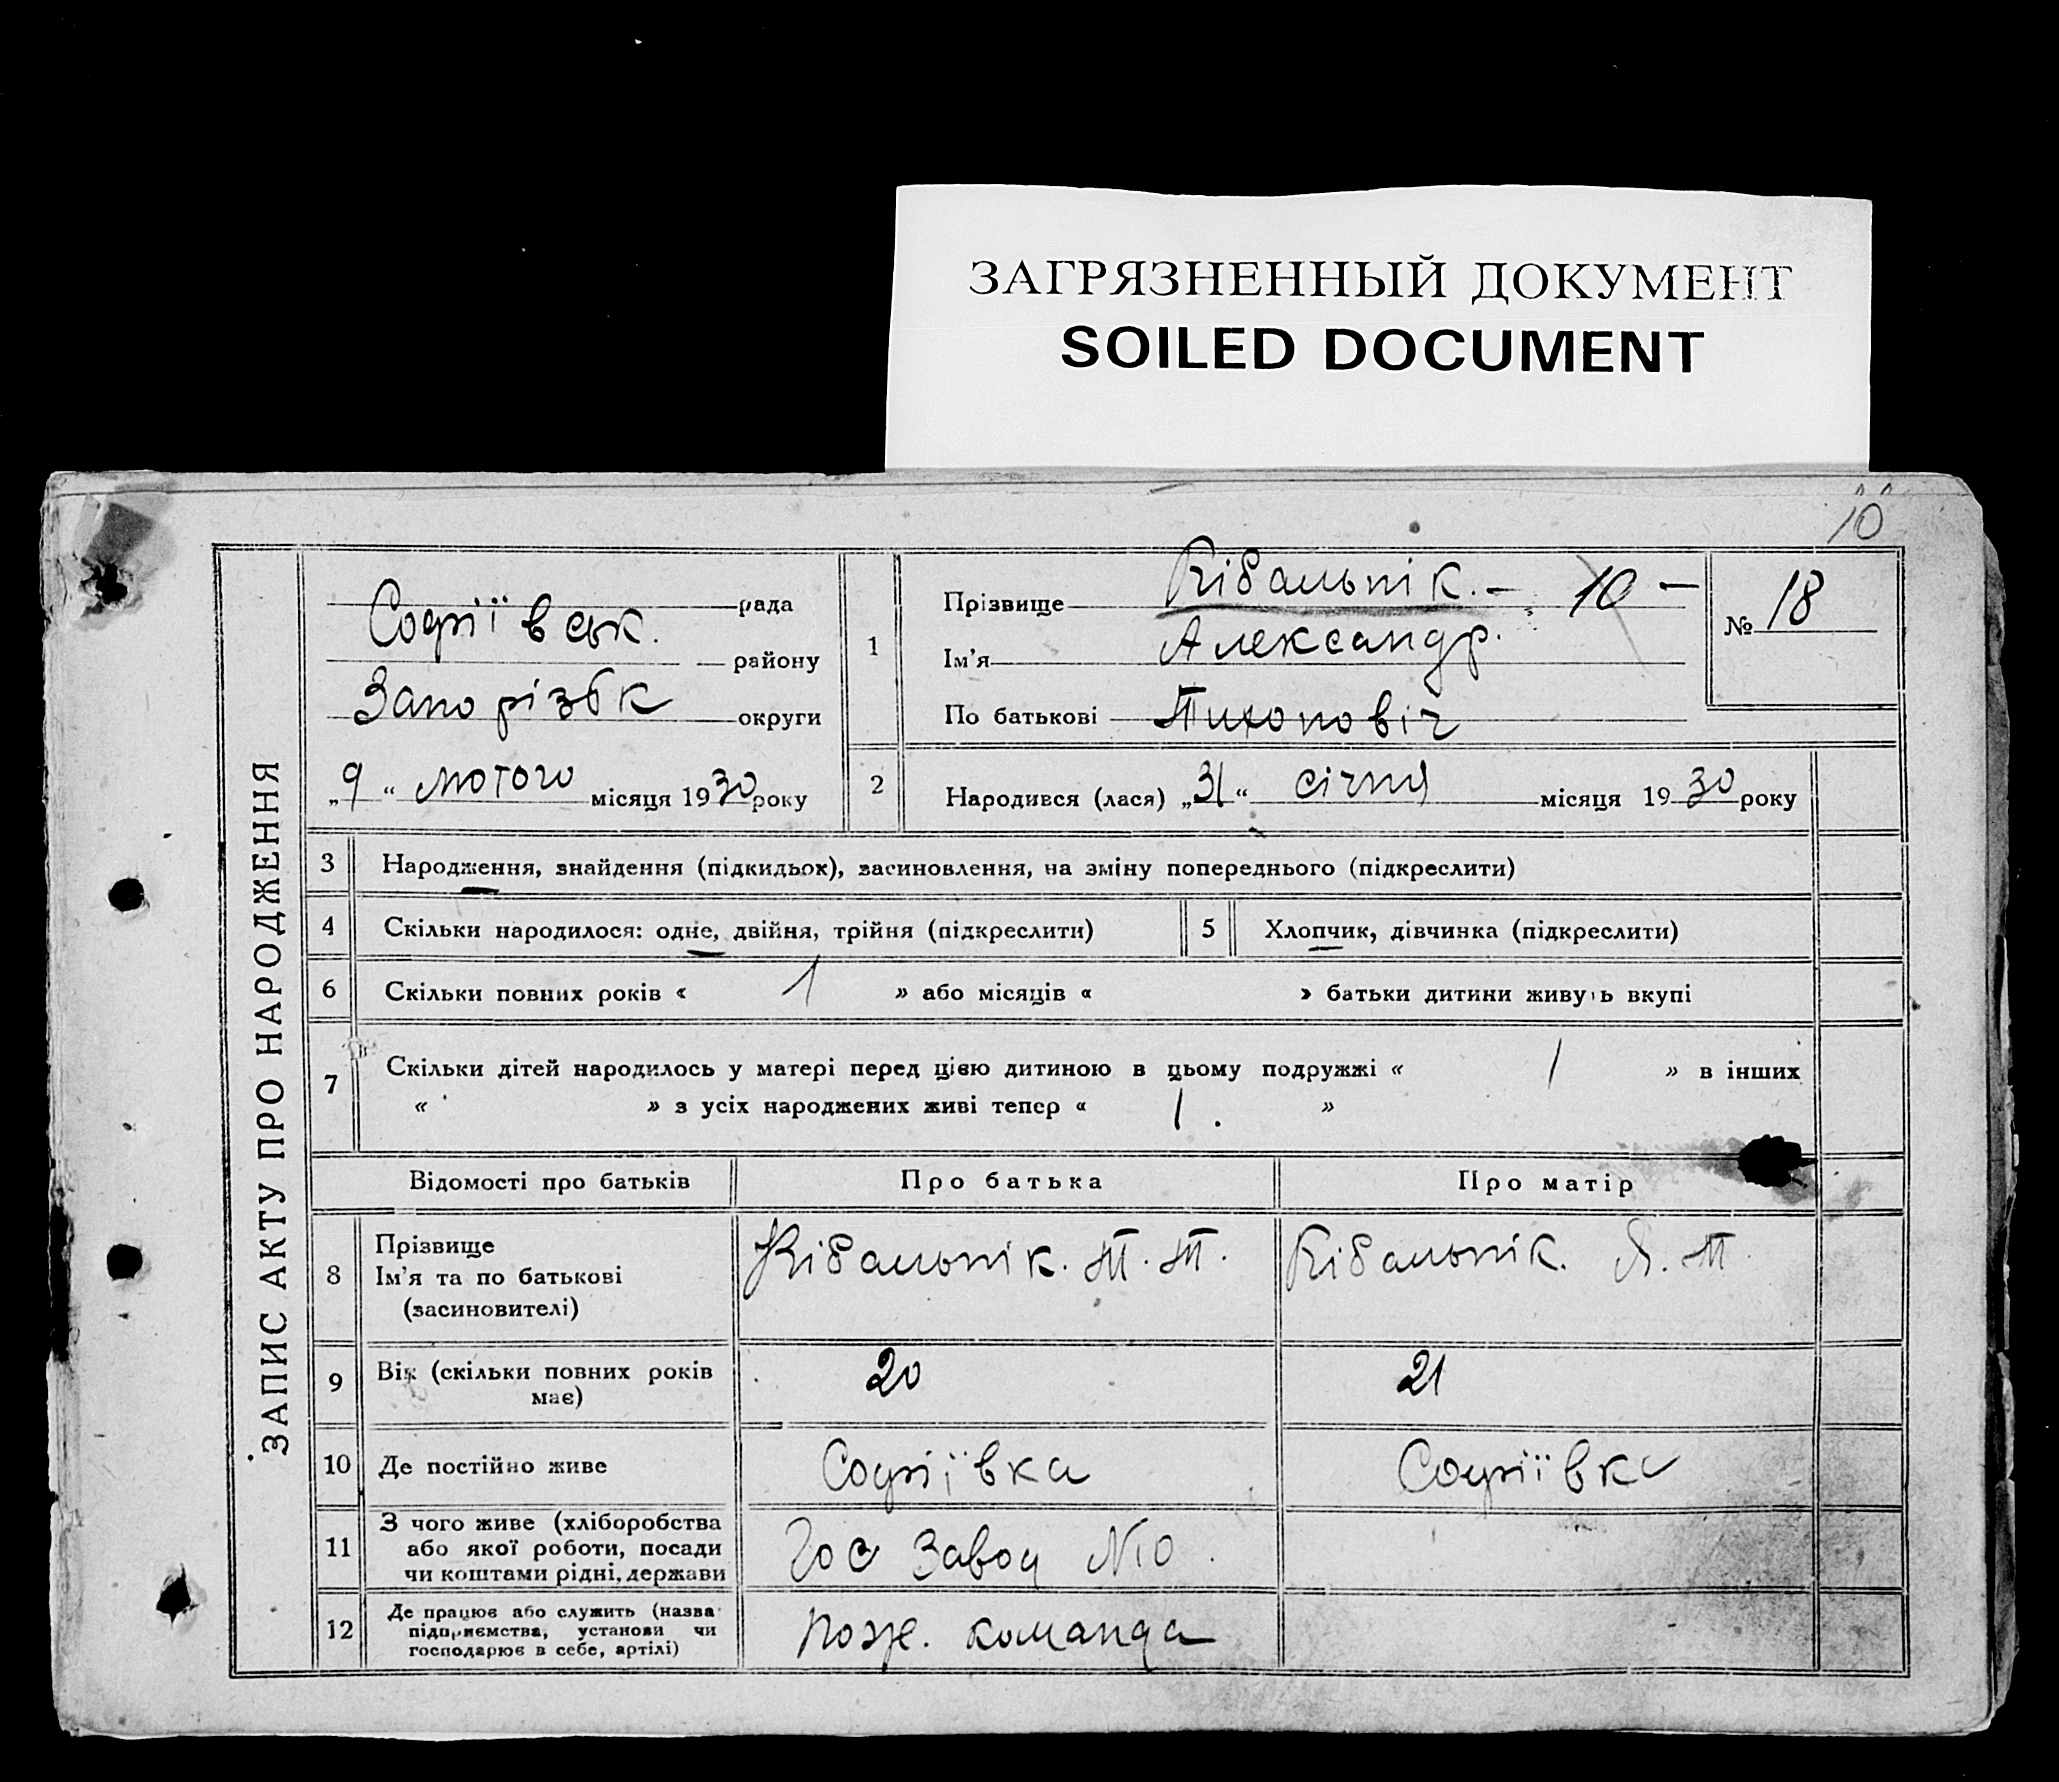 ЗАГРЯЗНЕННЫЙ ДОКУМЕНТ
SOILED DOCUMENT
10
ЗАПИС АКТУ ПРО НАРОДЖЕННЯ
Софіївськ. рада
району
Запорізьк округи
„9“ лютого місяця 1930 року
1
Прізвище Кібальнік. – 10 –
Ім’я Александр.
По батькові Тихоновіч
№ 18
2
Народився (лася) „31“ січня місяця 1930 року
3 Народження, знайдення (підкидьок), засиновлення, на зміну попереднього (підкреслити)
4 Скільки народилося: одне, двійня, трійня (підкреслити)
5 Хлопчик, дівчинка (підкреслити)
6 Скільки повних років « 1 » або місяців « » батьки дитини живуть вкупі
7 Скільки дітей народилось у матері перед цією дитиною в цьому подружжі « 1 » в інших
« » з усіх народжених живі тепер « 1. »
Відомості про батьків Про батька Про матір
8 Прізвище
Ім’я та по батькові
(засиновителі)
Кібальнік. Т. Т. Кібальнік. Я. Т
9 Вік (скільки повних років
має)
20 21
10 Де постійно живе Софіївка Софіївка
11 З чого живе (хліборобства
або якої роботи, посади
чи коштами рідні, держави
Гос Завод №10.
12 Де працює або служить (назва
підприємства, установи чи
господарює в себе, артілі)
Пож. команда